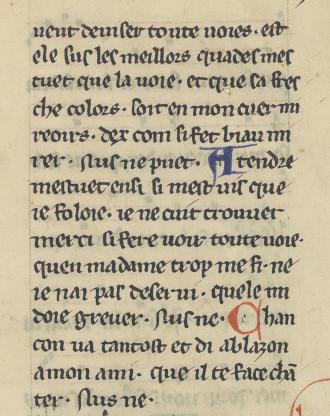 veut deuiser toute uoies · est
ele sus les meillors quades mes
tuet que la uoie · et que sa fres
che colors · soit en mon cuer mi
reoirs · dex com si fet biau mi
rer · Nus ne puet · Atendre
mestuet ensi si mest uis que
ie foloie · ie ne cuit trouuer
merci si fere uoir toute uoie·
quen ma dame trop me fi · ne
ie nai pas deserui · quele mi
doie greuer · Nus ne · Chan
con ua tantost et di a blazon
a mon ami · que il te face chā
ter · Nus ne ·